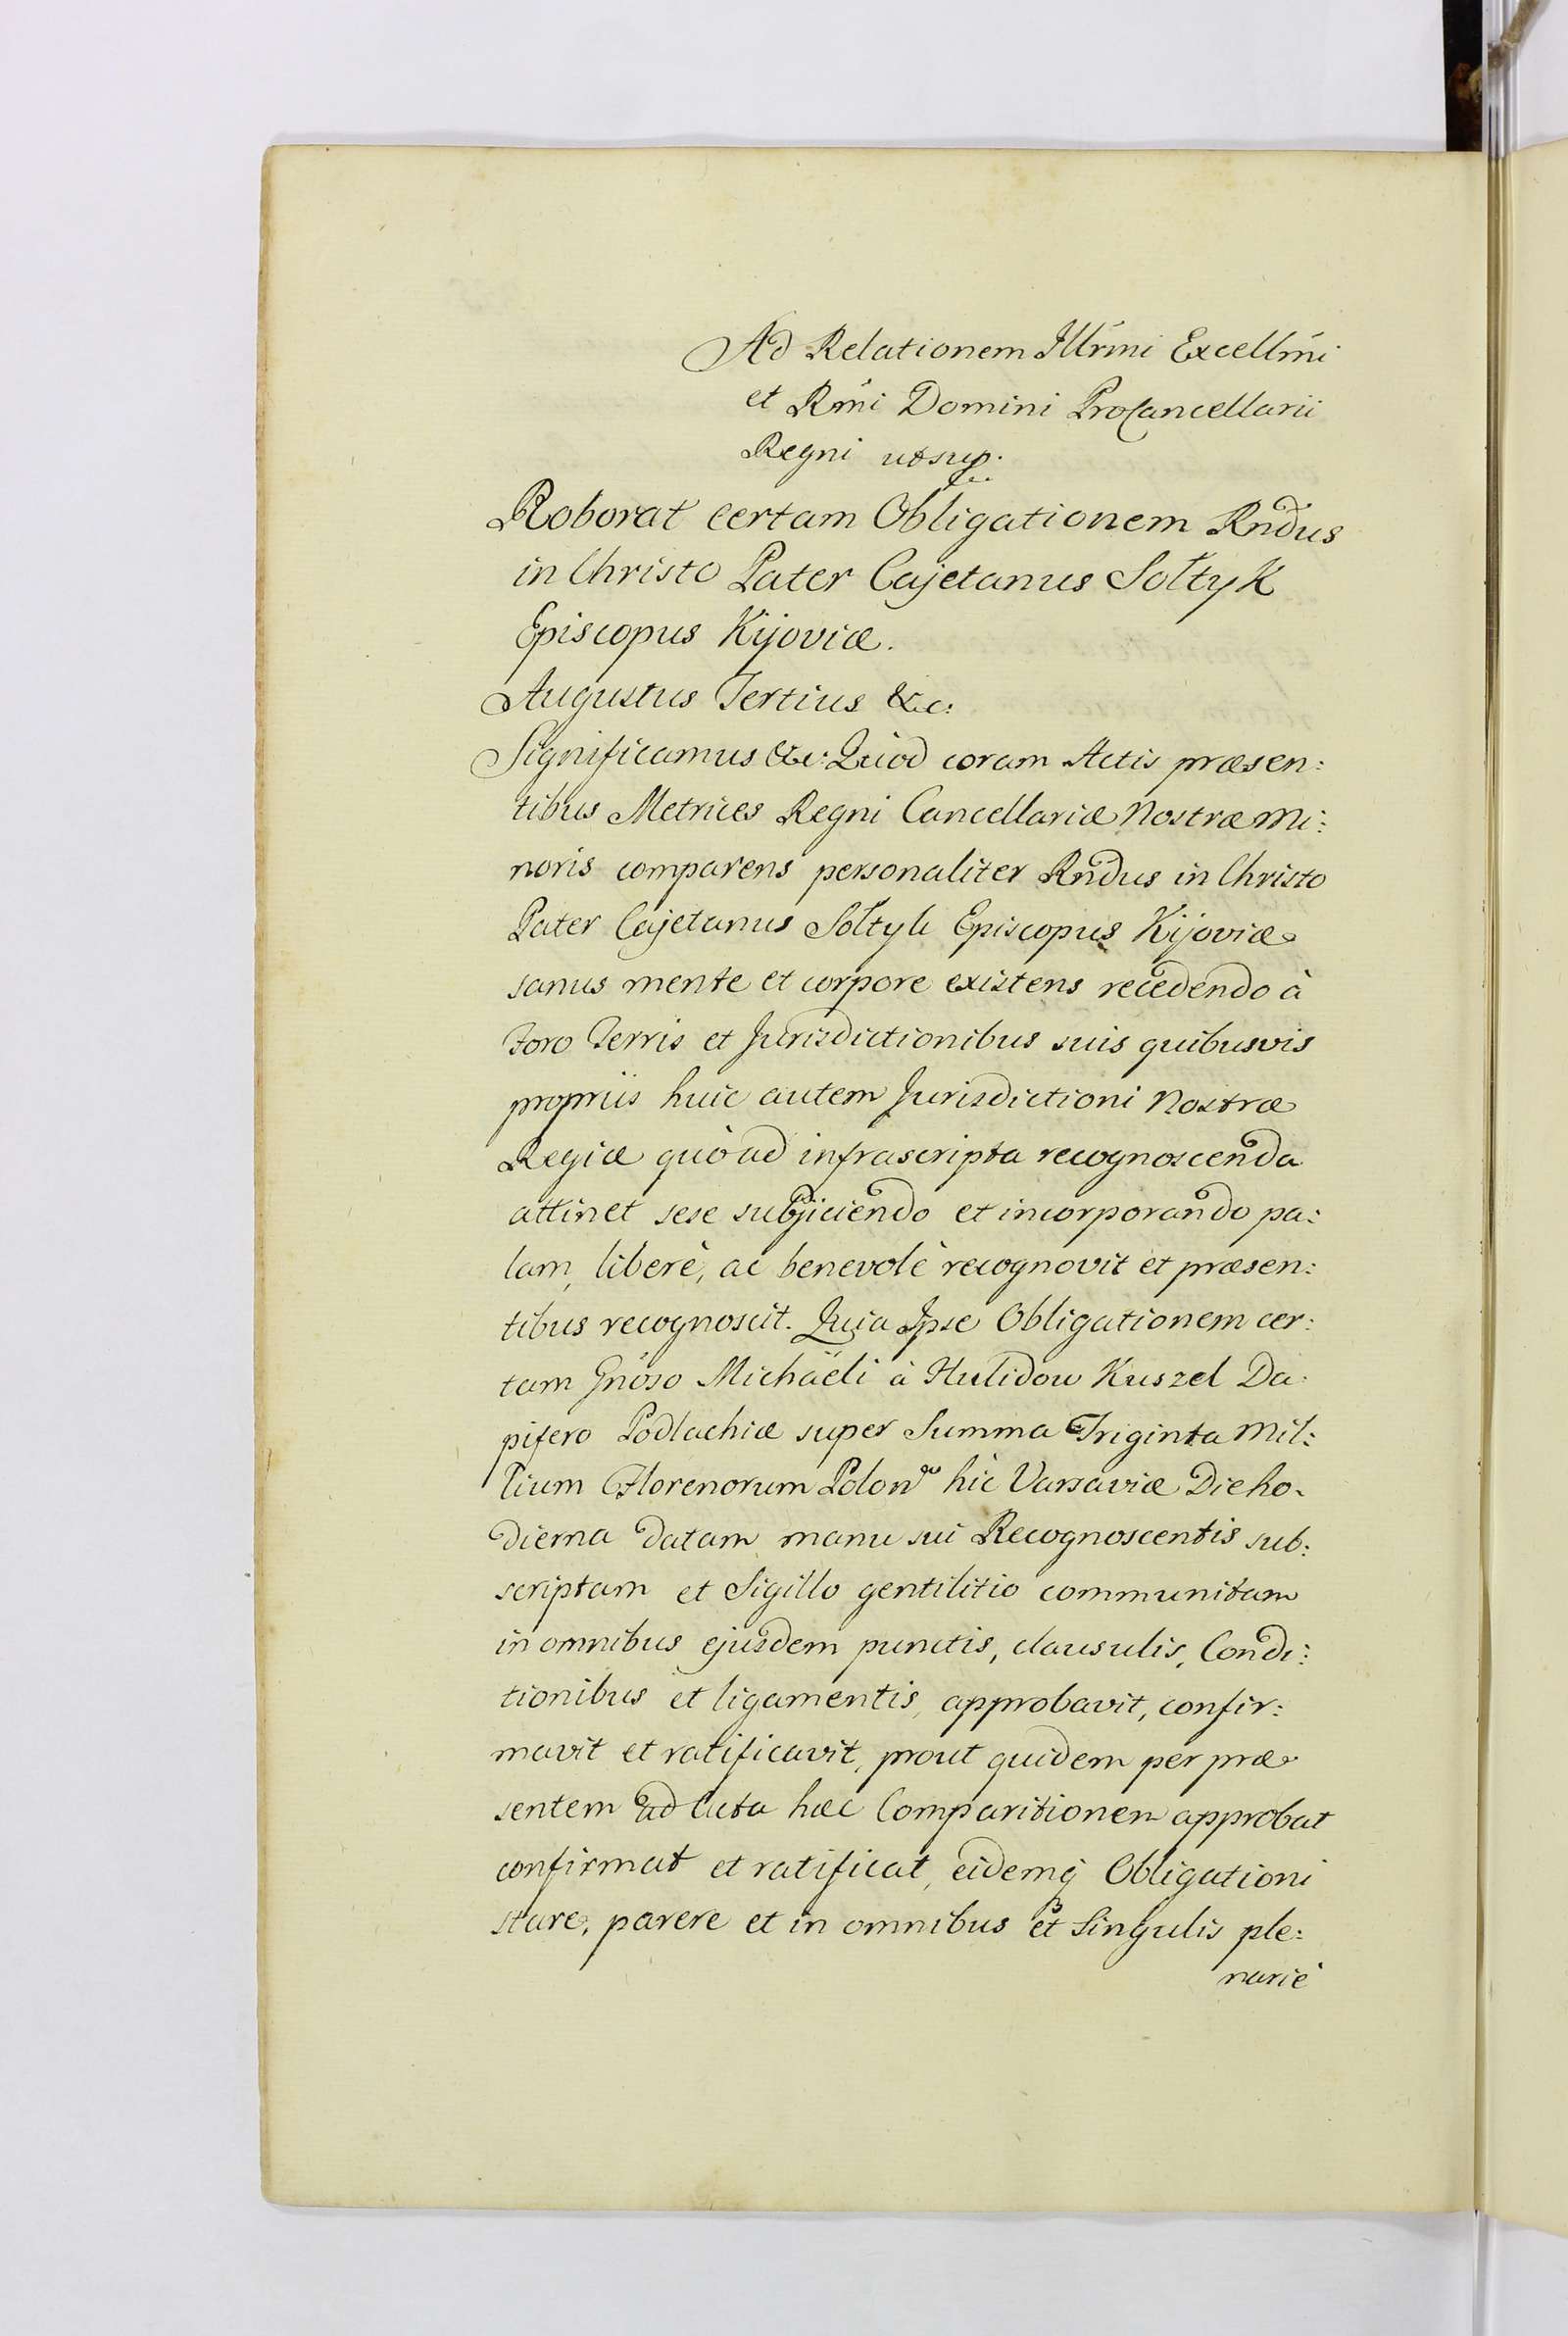 Ad Relationem Illrmi Excellmi
et Rmi Domini ProCancellarii
Regni utsup.
Roborat certam Obligationem Rndus
in Christo Pater Cajetanus Sołtyk
Episcopus Kijoviæ.
Augustus Tertius &c:
Significamus &c: Quod coram Actis præsen:
tibus Metrices Regni Cancellariæ Nostræ Mi:
noris comparens personaliter Rndus in Christo
Pater Cajetanus Sołtyk Episcopus Kijoviæ
sanus mente et corpore existens recedendo à
Foro Terris et Jurisdictionibus suis quibusvis
propriis huic autem Jurisdictioni Nostræ
Regiæ quò ad infrascripta recognoscenda
attinet sese subjiciendo et incorporando pa:
lam, liberè, ac benevolè recognovit et præsen:
tibus recognoscit. Quia Ipse Obligationem cer:
tam Gnoso Michaëli à Hulidow Kuszel Da:
pifero Podlachiæ super Summa Triginta Mil:
lium Florenorum Polon hic Varsaviæ Die ho-
dierna datam manu sui Recognoscentis sub:
scriptam et Sigillo gentilitio communitam
in omnibus ejusdem punctis, clausulis, Condi:
tionibus et ligamentis, approbavit, confir:
mavit et ratificavit, prout quidem per præ
sentem ad Acta hæc Comparitionem approbat
confirmat et ratificat, eidemq Obligationi
stare, parere et in omnibus et Singulis ple:
nariè